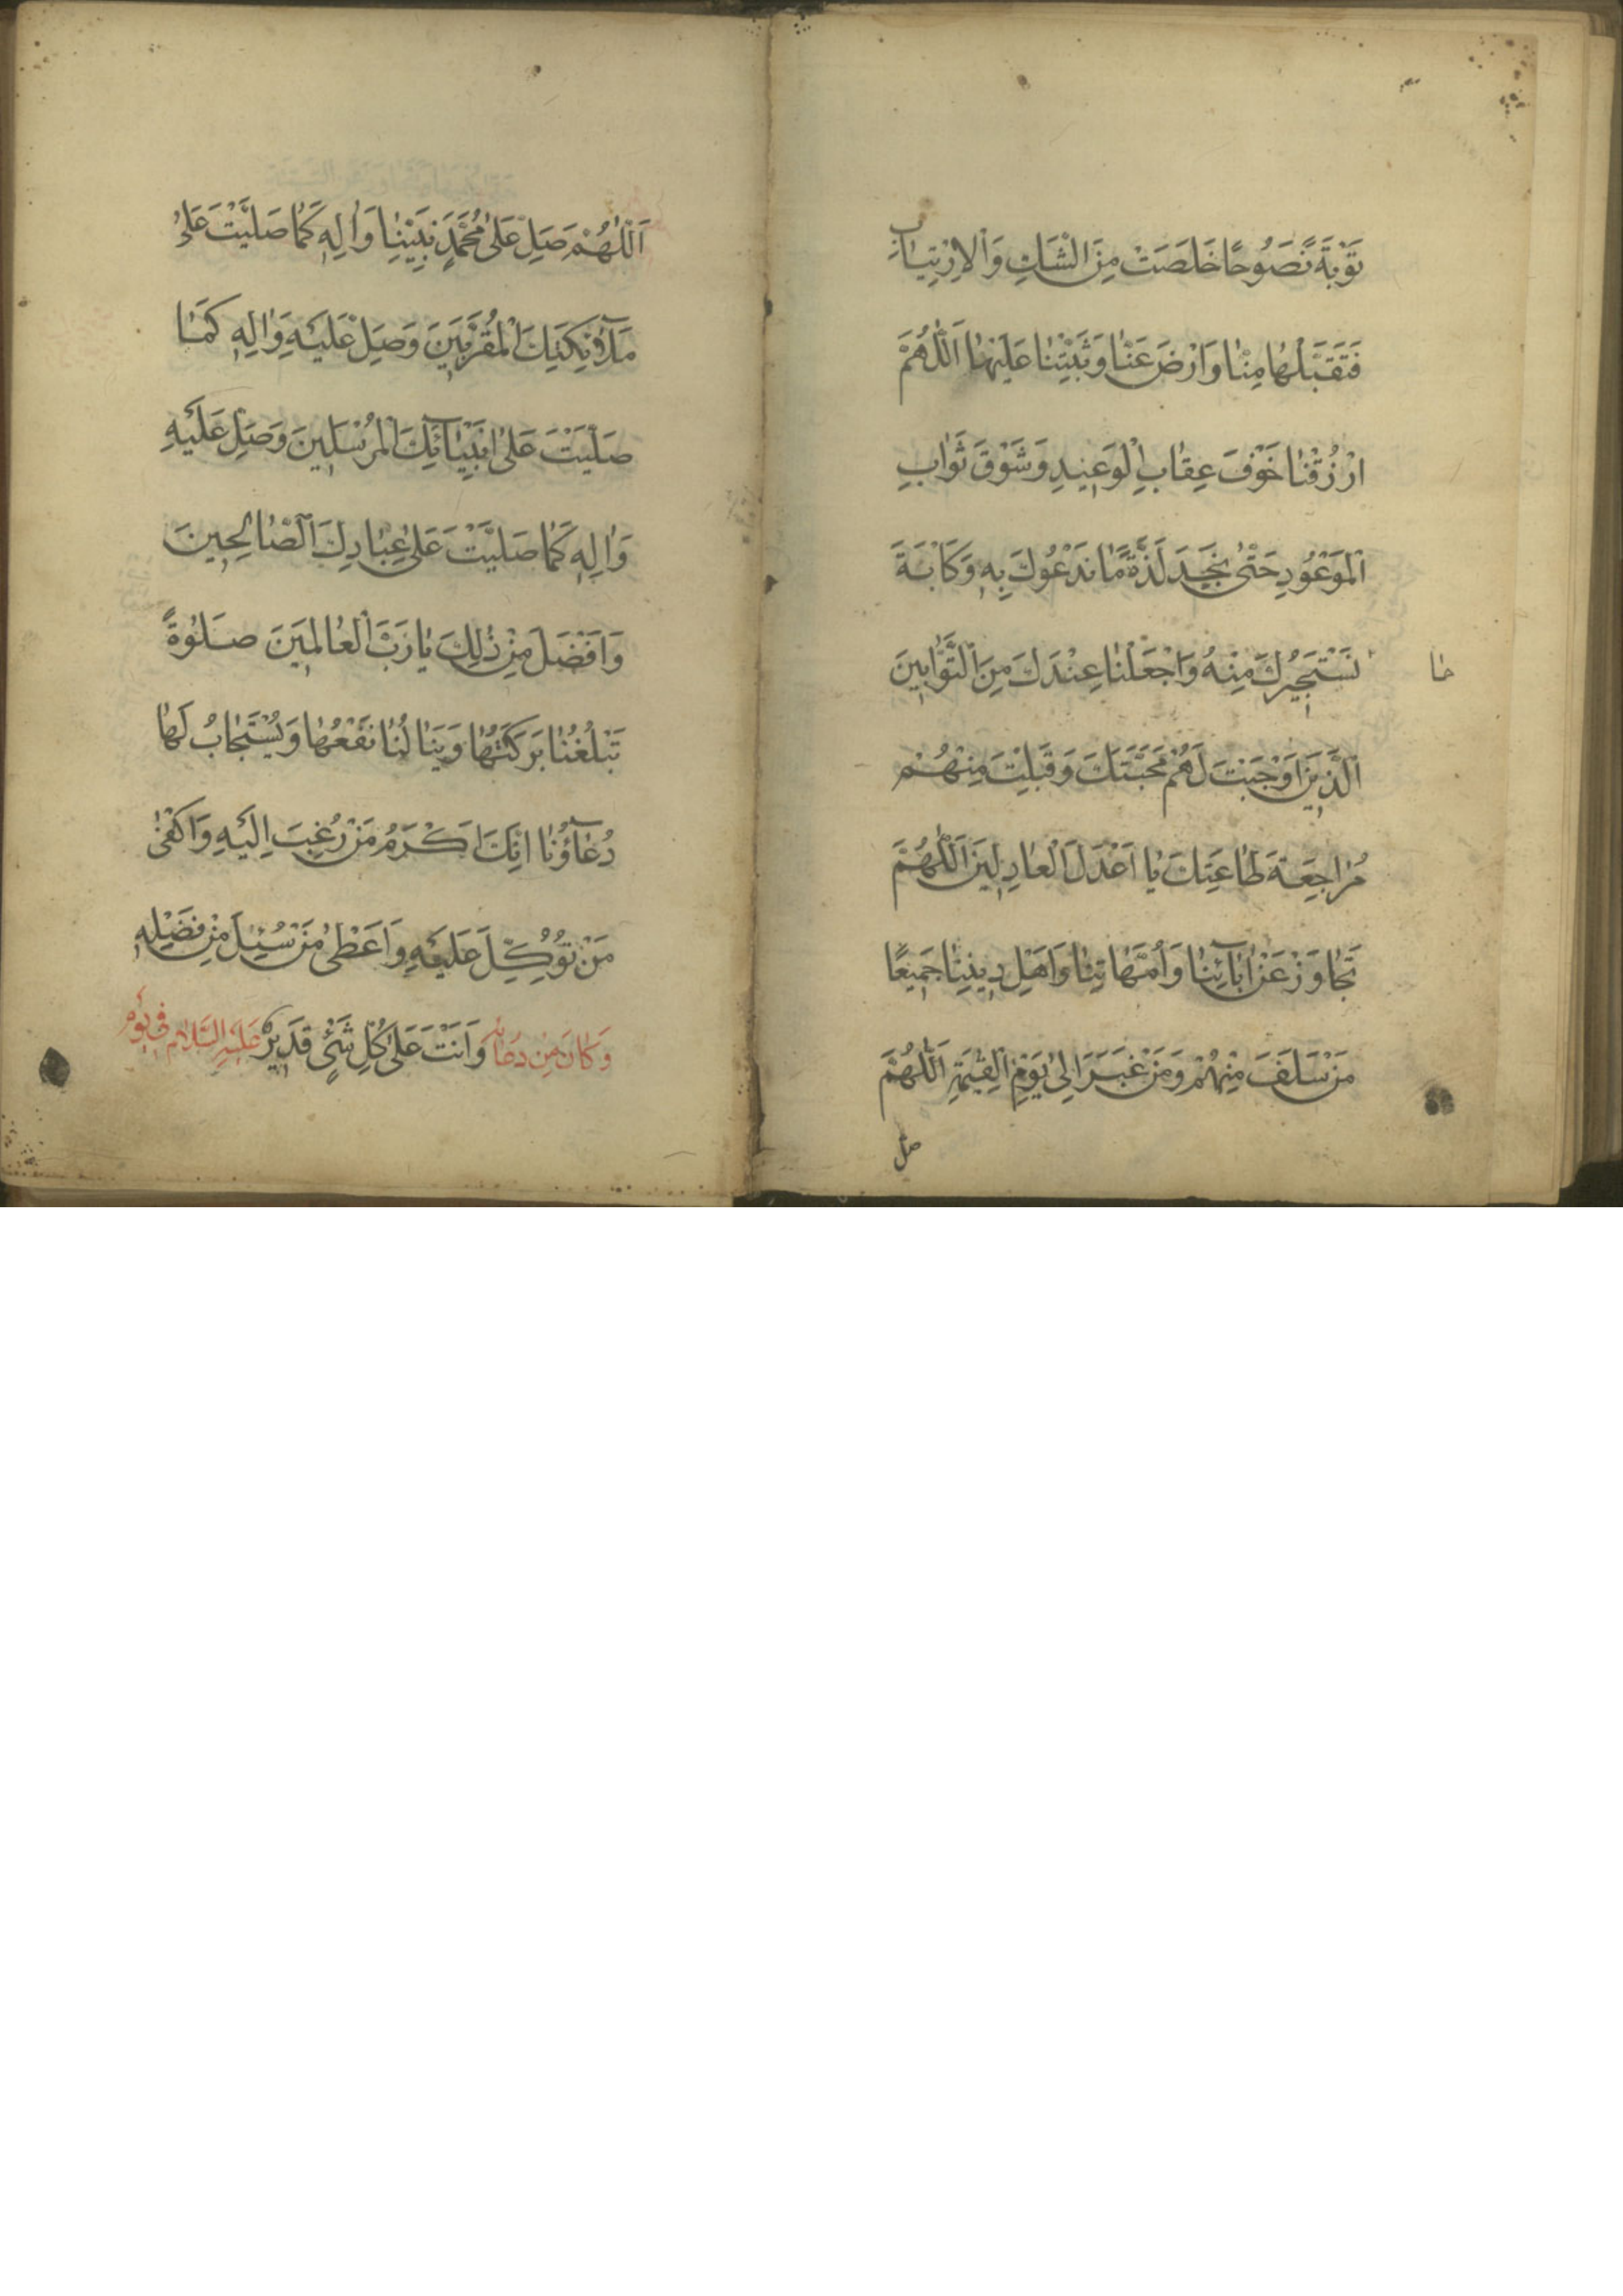 تَوْبَةً نَصُوحًا خَلَصَتْ مِنَ الشَّكِ وَالْاِرْتِيَابِ
فَتَقَبَّلْهَا مِنَّا وَارْضَ عَنَّا وَثَبِّتْنَا عَلَيْهَا اَللّٰهُمَّ
ارْزُقْنَا خَوْفَ عِقَابِ الْوَعِيدِ وَشَوْقَ ثَوَابِ
الْمَوْعُودِ حَتّٰى نَجِدَ لَذَّةَ مَا نَدْعُوكَ بِهِ وَكَاْبَةَ
نَسْتَجِيرُكَ مِنْهُ وَاجْعَلْنَا عِنْدَكَ مِنَ التَّوَّابِينَ
ما
الَّذِينَ اَوْجَبْتَ لَهُمْ مَحَبَّتَكَ وَقَبِلْتَ مِنْهُمْ
مُرَاجَعَةَ طَاعَتِكَ يَا اَعْدَلَ الْعَادِلِينَ اَللّٰهُمَّ
تَجَاوَزْ عَنْ اٰبَآئِنَا وَاُمَّهَاتِنَا وَاَهْلِ دِينِنَا جَمِيعًا
مَنْ سَلَفَ مِنْهُمْ وَمَنْ غَبَرَ اِلٰى يَوْمِ الْقِيٰمَةِ اَللّٰهُمَّ
صل
اَللّٰهُمَّ صَلِّ عَلٰى مُحَمَّدٍ نَبِيِّنَا وَاٰلِهِ كَمَا صَلَّيْتَ عَلٰى
مَلٰٓئِكَتِكَ الْمُقَرَّبِينَ وَصَلِّ عَلَيْهِ وَاٰلِهِ كَمَا
صَلَّيْتَ عَلٰى اَنْبِيَآئِكَ الْمُرْسَلِينَ وَصَلِّ عَلَيْهِ
وَاٰلِهِ كَمَا صَلَّيْتَ عَلٰى عِبَادِكَ الصَّالِحِينَ
وَاَفْضَلَ مِنْ ذٰلِكَ يَا رَبَّ الْعَالَمِينَ صَلٰوةً
تَبْلُغُنَا بَرَكَتُهَا وَيَنَالُنَا نَفْعُهَا وَيُسْتَجَابُ لَهَا
دُعَآؤُنَا اِنَّكَ اَكْرَمُ مَنْ رُغِبَ اِلَيْهِ وَاَكْفٰى
مَنْ تُوُكِّلَ عَلَيْهِ وَاَعْطٰى مَنْ سُئِلَ مِنْ فَضْلِهِ
وَكَانَ مِنْ دُعَائِهِ وَاَنْتَ عَلٰى كُلِّ شَيْءٍ قَدِيرٌ عَلَيْهِ السَّلَامُ فِي يَوْمِ